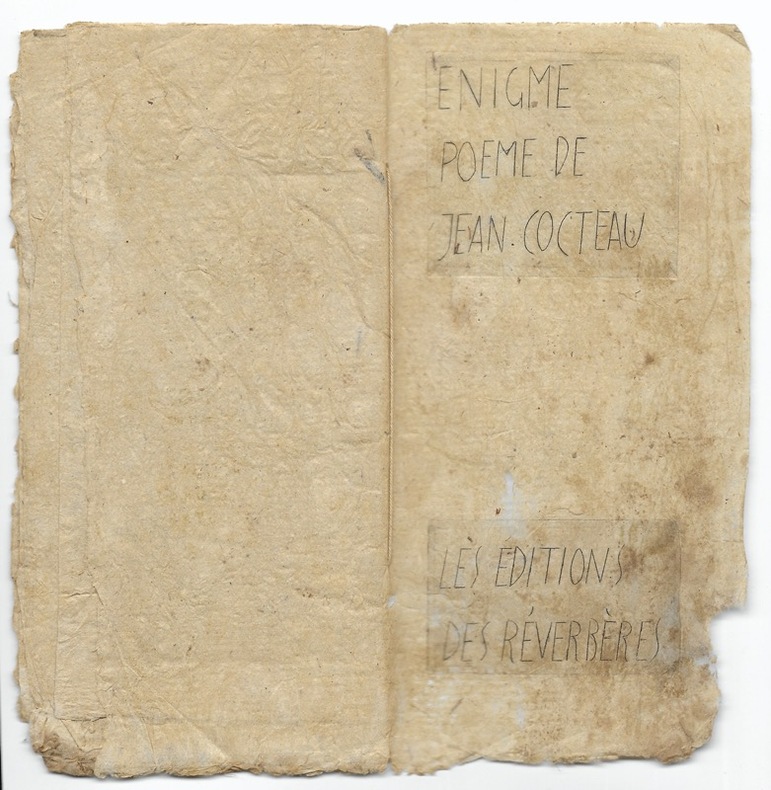 ENIGME
POEME DE
JEAN. COCTEAU
LES EDITIONS
DES RÉVERBÈRES